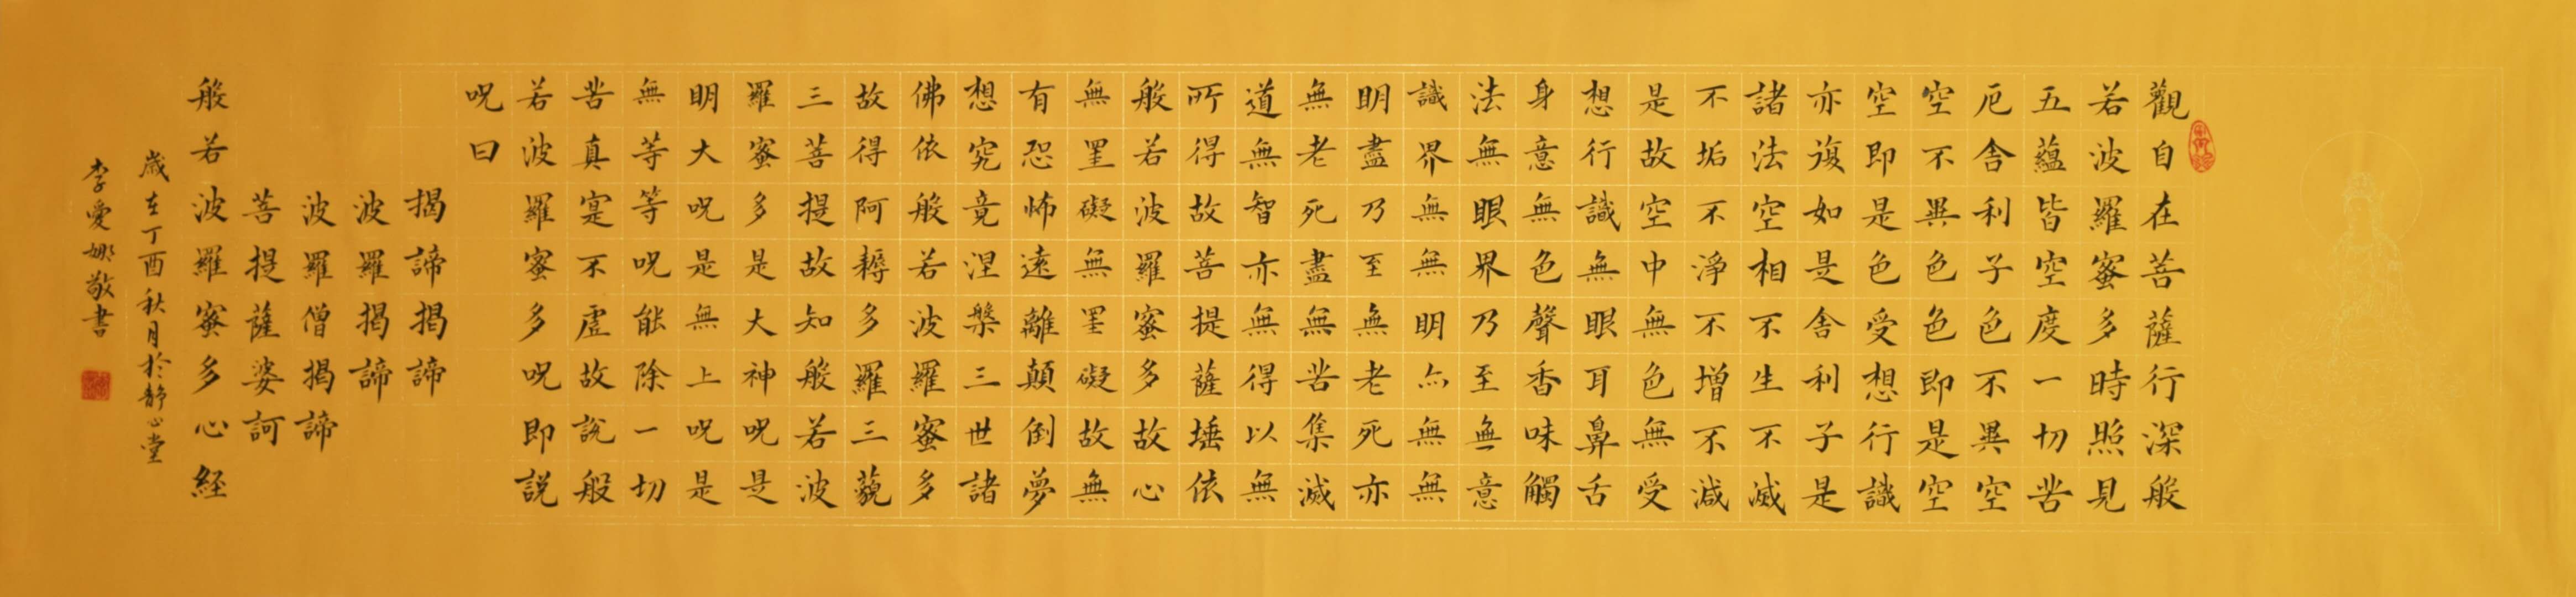 觀自在菩薩行深般
若波羅蜜多時照見
五蘊皆空度一切苦
厄舍利子色不異空
空不異色色即是空
空即是色受想行識
亦復如是舍利子是
諸法空相不生不滅
不垢不淨不增不減
是故空中無色無受
想行識無眼耳鼻舌
身意無色聲香味觸
法無眼界乃至無意
識界無無明亦無無
明盡乃至無老死亦
無老死盡無苦集滅
道無智亦無得以無
所得故菩提薩埵依
般若波羅蜜多故心
無罣礙無罣礙故無
有恐怖遠離顛倒夢
想究竟涅槃三世諸
佛依般若波羅蜜多
故得阿耨多羅三藐
三菩提故知般若波
羅蜜多是大神呪是
明大呪是無上呪是
無等等呪能除一切
苦真寔不虛故說般
若波羅蜜多呪即說
呪曰
揭諦揭諦
波羅揭諦
波羅僧揭諦
菩提薩婆訶
般若波羅蜜多心経
歲在丁酉秋月於靜心堂
李愛娜敬書